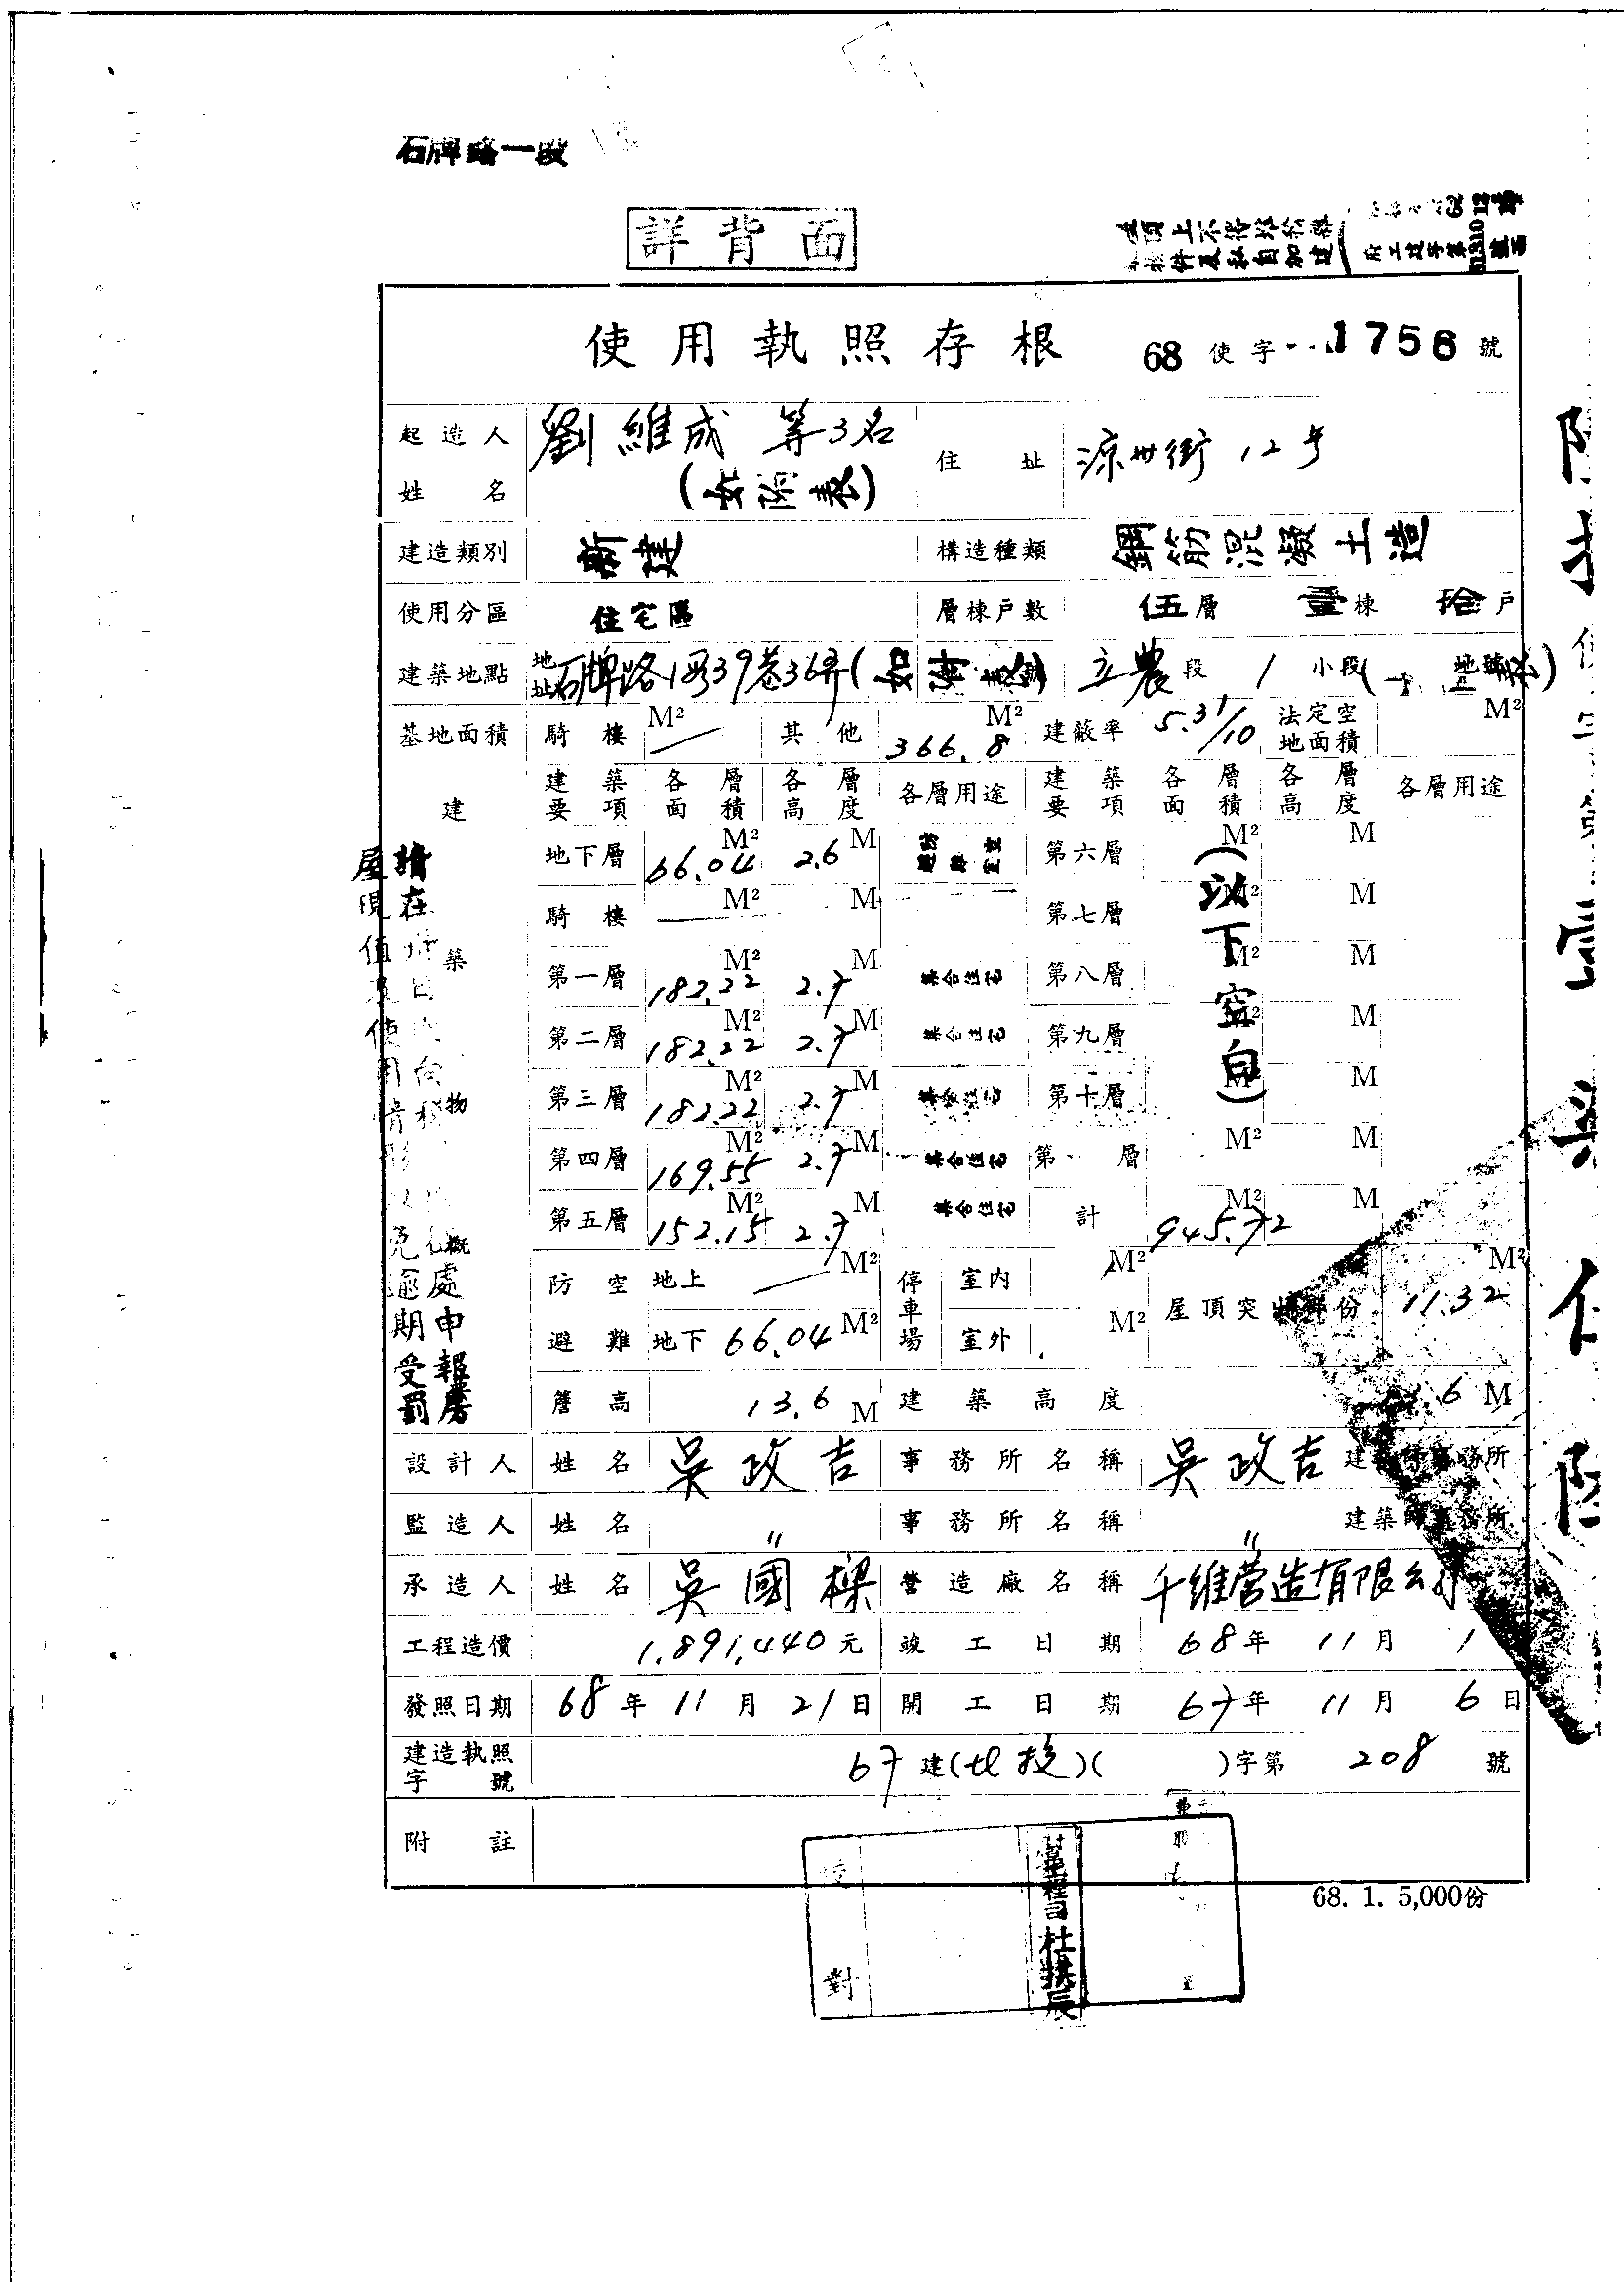 石牌路一段
詳背面
使用執照存根 68 使字 1756 號
起造人姓名 劉維成 等3名 (如附表) 住址 涼州街 12号
建造類別 新建 構造種類 鋼筋混凝土造
使用分區 住宅區 層棟戶數 伍層 壹棟 拾戶
建築地點 地址 石牌路1段39巷36弄( 立農段 1 小段( 地號
基地面積 騎樓 M² — 其他 366.8 M² 建蔽率 5.31/10 法定空地面積 M²
建築物概 建築要項 各層面積 各層高度 各層用途 建築要項 各層面積 各層高度 各層用途
地下層 66.04 M² 2.6 M 第六層 M² M
騎樓 — M² M 第七層 M² M
第一層 182.22 M² 2.7 M 集合住宅 第八層 M² M
第二層 182.22 M² 2.7 M 集合住宅 第九層 M² M
第三層 182.22 M² 2.7 M 集合住宅 第十層 M² M
第四層 169.55 M² 2.7 M 集合住宅 第 層 M² M
第五層 152.15 M² 2.7 M 集合住宅 計 945.72 M² M
(以下空白)
防空避難 地上 — M² 停車場 室內 M² 屋頂突出部份 11.32 M²
地下 66.04 M² 室外 M²
簷高 13.6 M 建築高度 6 M
設計人 姓名 吳政吉 事務所名稱 吳政吉 建築師事務所
監造人 姓名 〃 事務所名稱 〃 建築師事務所
承造人 姓名 吳國樑 營造廠名稱 千維營造有限公司
工程造價 1,891,440元 竣工日期 68年 11月 1
發照日期 68年 11月 21日 開工日期 67年 11月 6日
建造執照字號 67 建(北投)( )字第 208 號
附註
68. 1. 5,000份
對
杜